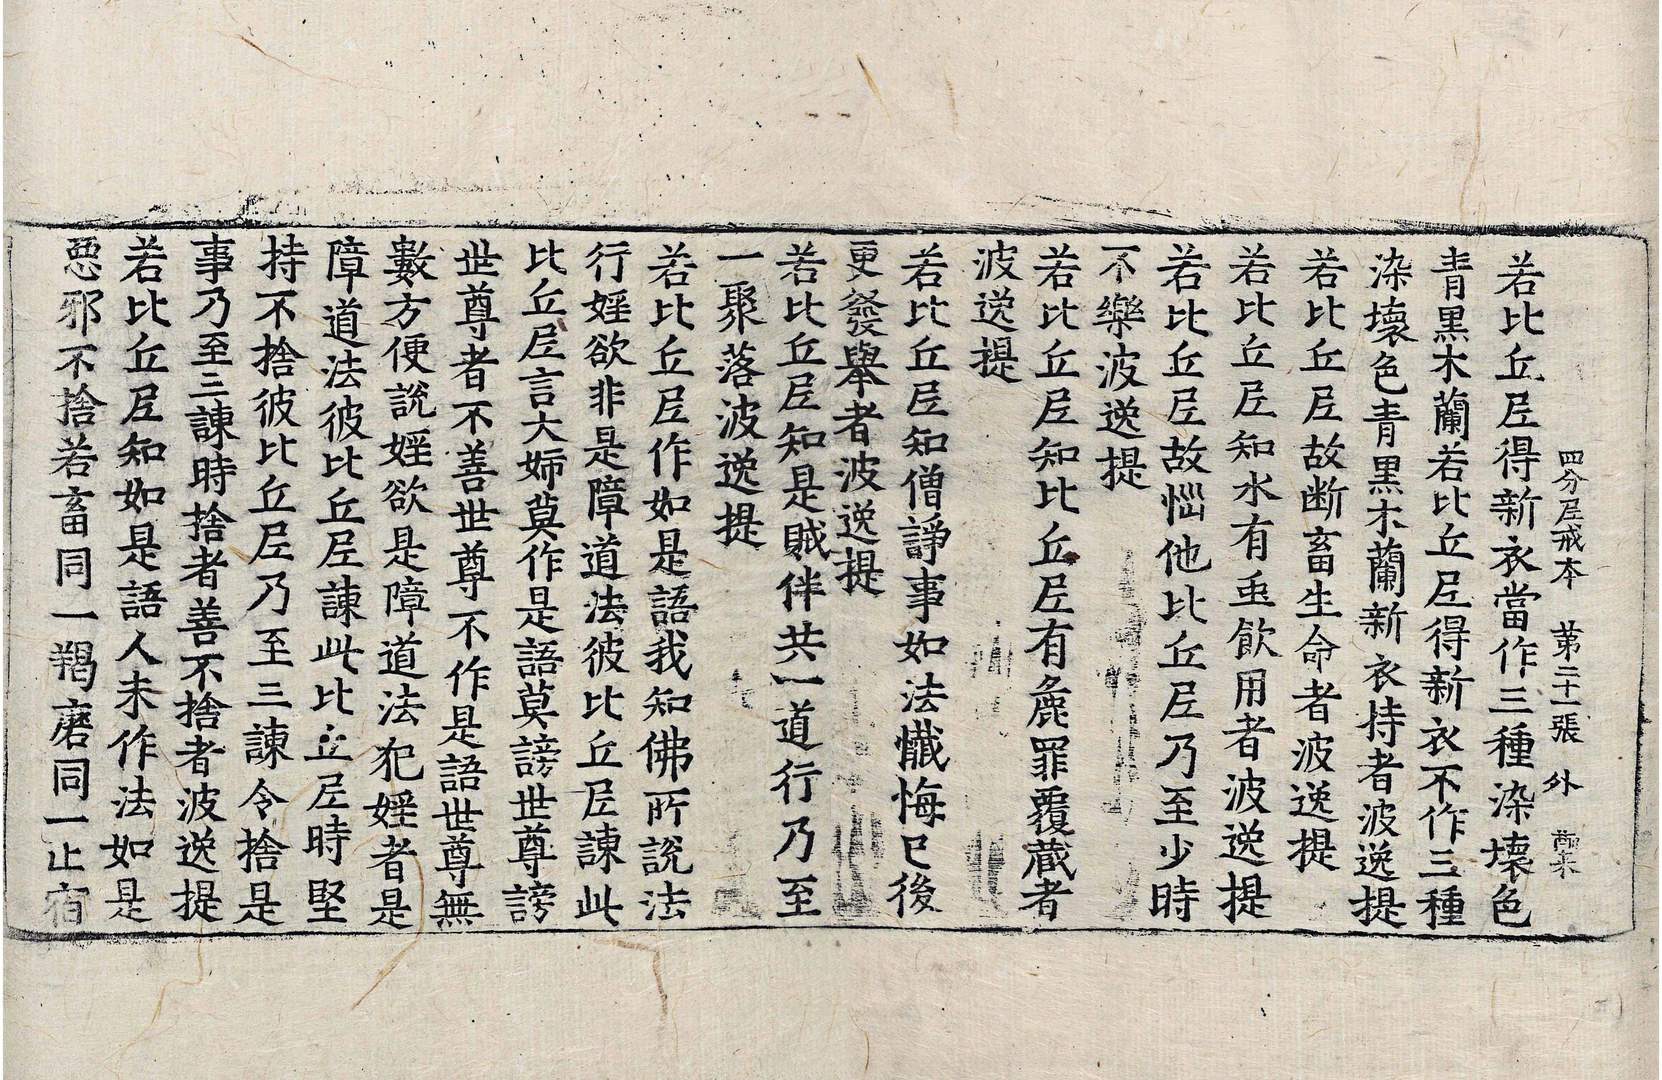 四分尼戒本　第二十一張　外
若比丘尼得新衣當作三種染壞色
青黑木蘭若比丘尼得新衣不作三種
染壞色青黑木蘭新衣持者波逸提
若比丘尼故斷畜生命者波逸提
若比丘尼知水有虫飲用者波逸提
若比丘尼故惱他比丘尼乃至少時
不樂波逸提
若比丘尼知比丘尼有麁罪覆藏者
波逸提
若比丘尼知僧諍事如法懺悔已後
更發舉者波逸提
若比丘尼知是賊伴共一道行乃至
一聚落波逸提
若比丘尼作如是語我知佛所說法
行婬欲非是障道法彼比丘尼諫此
比丘尼言大姊莫作是語莫謗世尊謗
世尊者不善世尊不作是語世尊無
數方便說婬欲是障道法犯婬者是
障道法彼比丘尼諫此比丘尼時堅
持不捨彼比丘尼乃至三諫令捨是
事乃至三諫時捨者善不捨者波逸提
若比丘尼知如是語人未作法如是
惡邪不捨若畜同一羯磨同一止宿